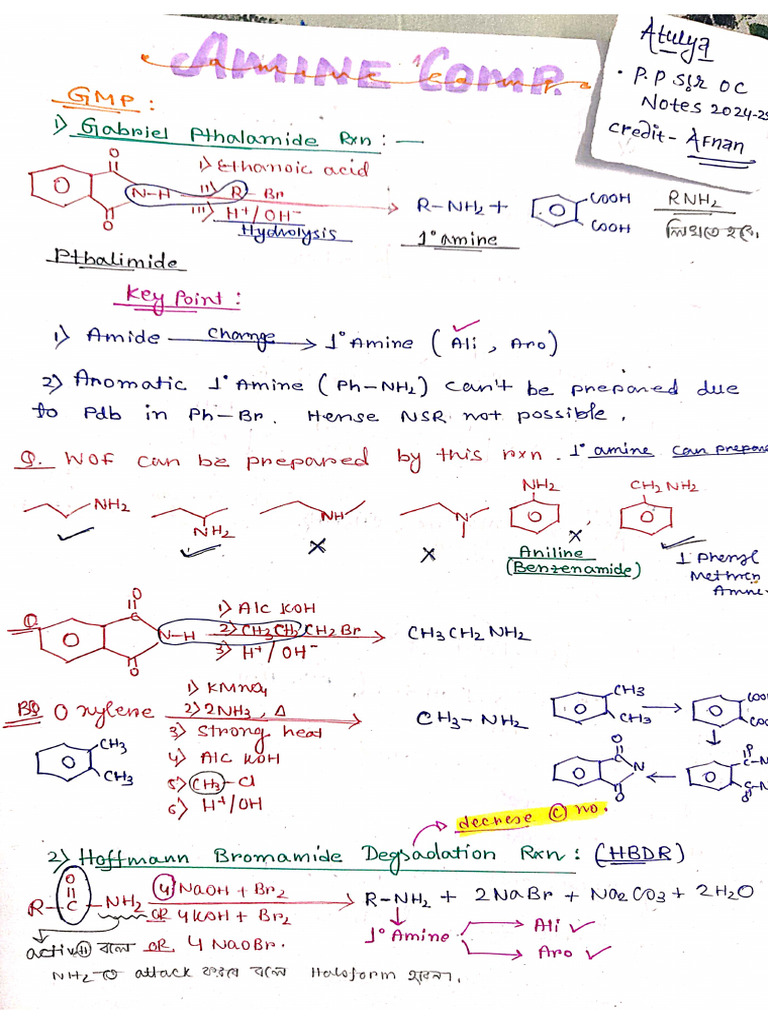 AMINE COMP.
Amine comp.
Atulya
• P.P Sir OC
Notes 2024-25
credit- Afnan
GMP:
1) Gabriel Pthalamide Rxn: —
O
1) Ethanoic acid
N-H 11) R- Br
O
111) H+/OH-
Hydrolysis
R-NH2 +
COOH
COOH
1° amine
RNH2
লিখতে হবে.
Pthalimide
Key Point:
1) Amide Change → 1° Amine (Ali, Aro)
2) Aromatic 1° Amine (Ph-NH2) can't be prepared due
to Pdb in Ph-Br. Hense NSR not possible.
Q. WOF can be prepared by this rxn. 1° amine can prepare
NH2
NH2
NH
N
NH2
CH2NH2
Aniline
(Benzenamide)
1 Phenyl
Methan
Amine
Q
O
C
N-H
O
1) Alc KOH
2) CH3CH2CH2Br
3) H+/OH-
CH3CH2NH2
BQ O xylene
CH3
CH3
1) KMnO4
2) 2NH3, Δ
3) Strong heat
4) Alc KOH
5) CH3-Cl
6) H+/OH
CH3-NH2
CH3
CH3
COO
CO
O
C-N
C-N
O
O
C
N
C
O
decrese C no.
2) Hoffmann Bromamide Degradation Rxn: (HBDR)
O
R-C-NH2
4 NaOH + Br2
OR 4 KOH + Br2
OR 4 NaOBr.
R-NH2 + 2NaBr + Na2CO3 + 2H2O
1° Amine
Ali ✓
Aro ✓
NH2-তে attack করবে বলে Haloform হবেনা.